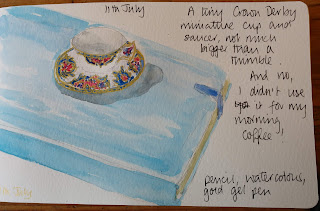 11th July
A tiny Crown Derby
miniature cup and
saucer, not much
bigger than a
thimble.
And no,
I didn't use
it for my
morning
coffee!
pencil, watercolour,
gold gel pen